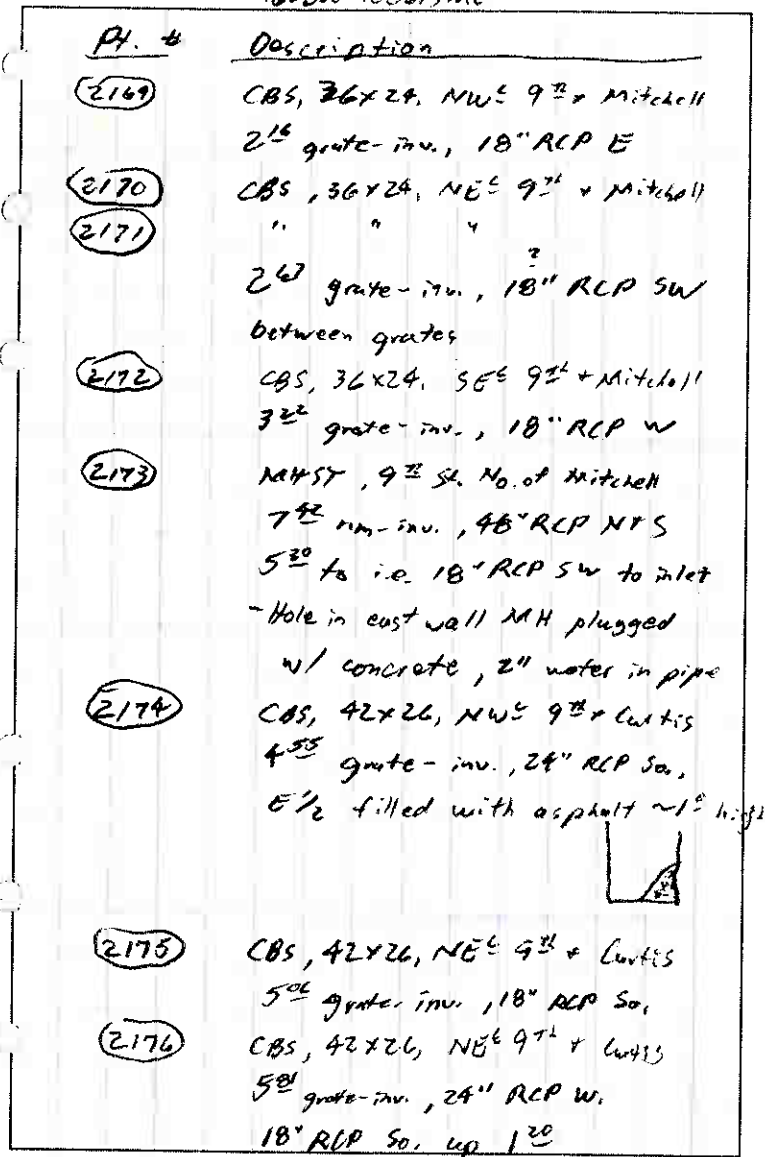 Pt. # Description
2169 CBS, 36x24, NWᶜ 9ᵗʰ + Mitchell
2¹⁶ grate-inv., 18" RCP E
2170 CBS, 36x24, NEᶜ 9ᵗʰ + Mitchell
2171 " " "
?
2⁶³ grate-inv., 18" RCP SW
between grates
2172 CBS, 36x24, SEᶜ 9ᵗʰ + Mitchell
3²² grate-inv., 18" RCP W
2173 MHST, 9ᵗʰ St. No. of Mitchell
7⁴² rim-inv., 48" RCP N+S
5³⁰ to i.e. 18" RCP SW to inlet
- Hole in east wall MH plugged
w/ concrete, 2" water in pipe
2174 CBS, 42x26, NWᶜ 9ᵗʰ + Curtis
4⁵⁵ grate-inv., 24" RCP So.,
E 1/2 filled with asphalt ~1⁰ high
2175 CBS, 42x26, NEᶜ 9ᵗʰ + Curtis
5⁰⁶ grate-inv., 18" RCP So.
2176 CBS, 42x26, NEᶜ 9ᵗʰ + Curtis
5⁸¹ grate-inv., 24" RCP W.
18" RCP So. up 1²⁰